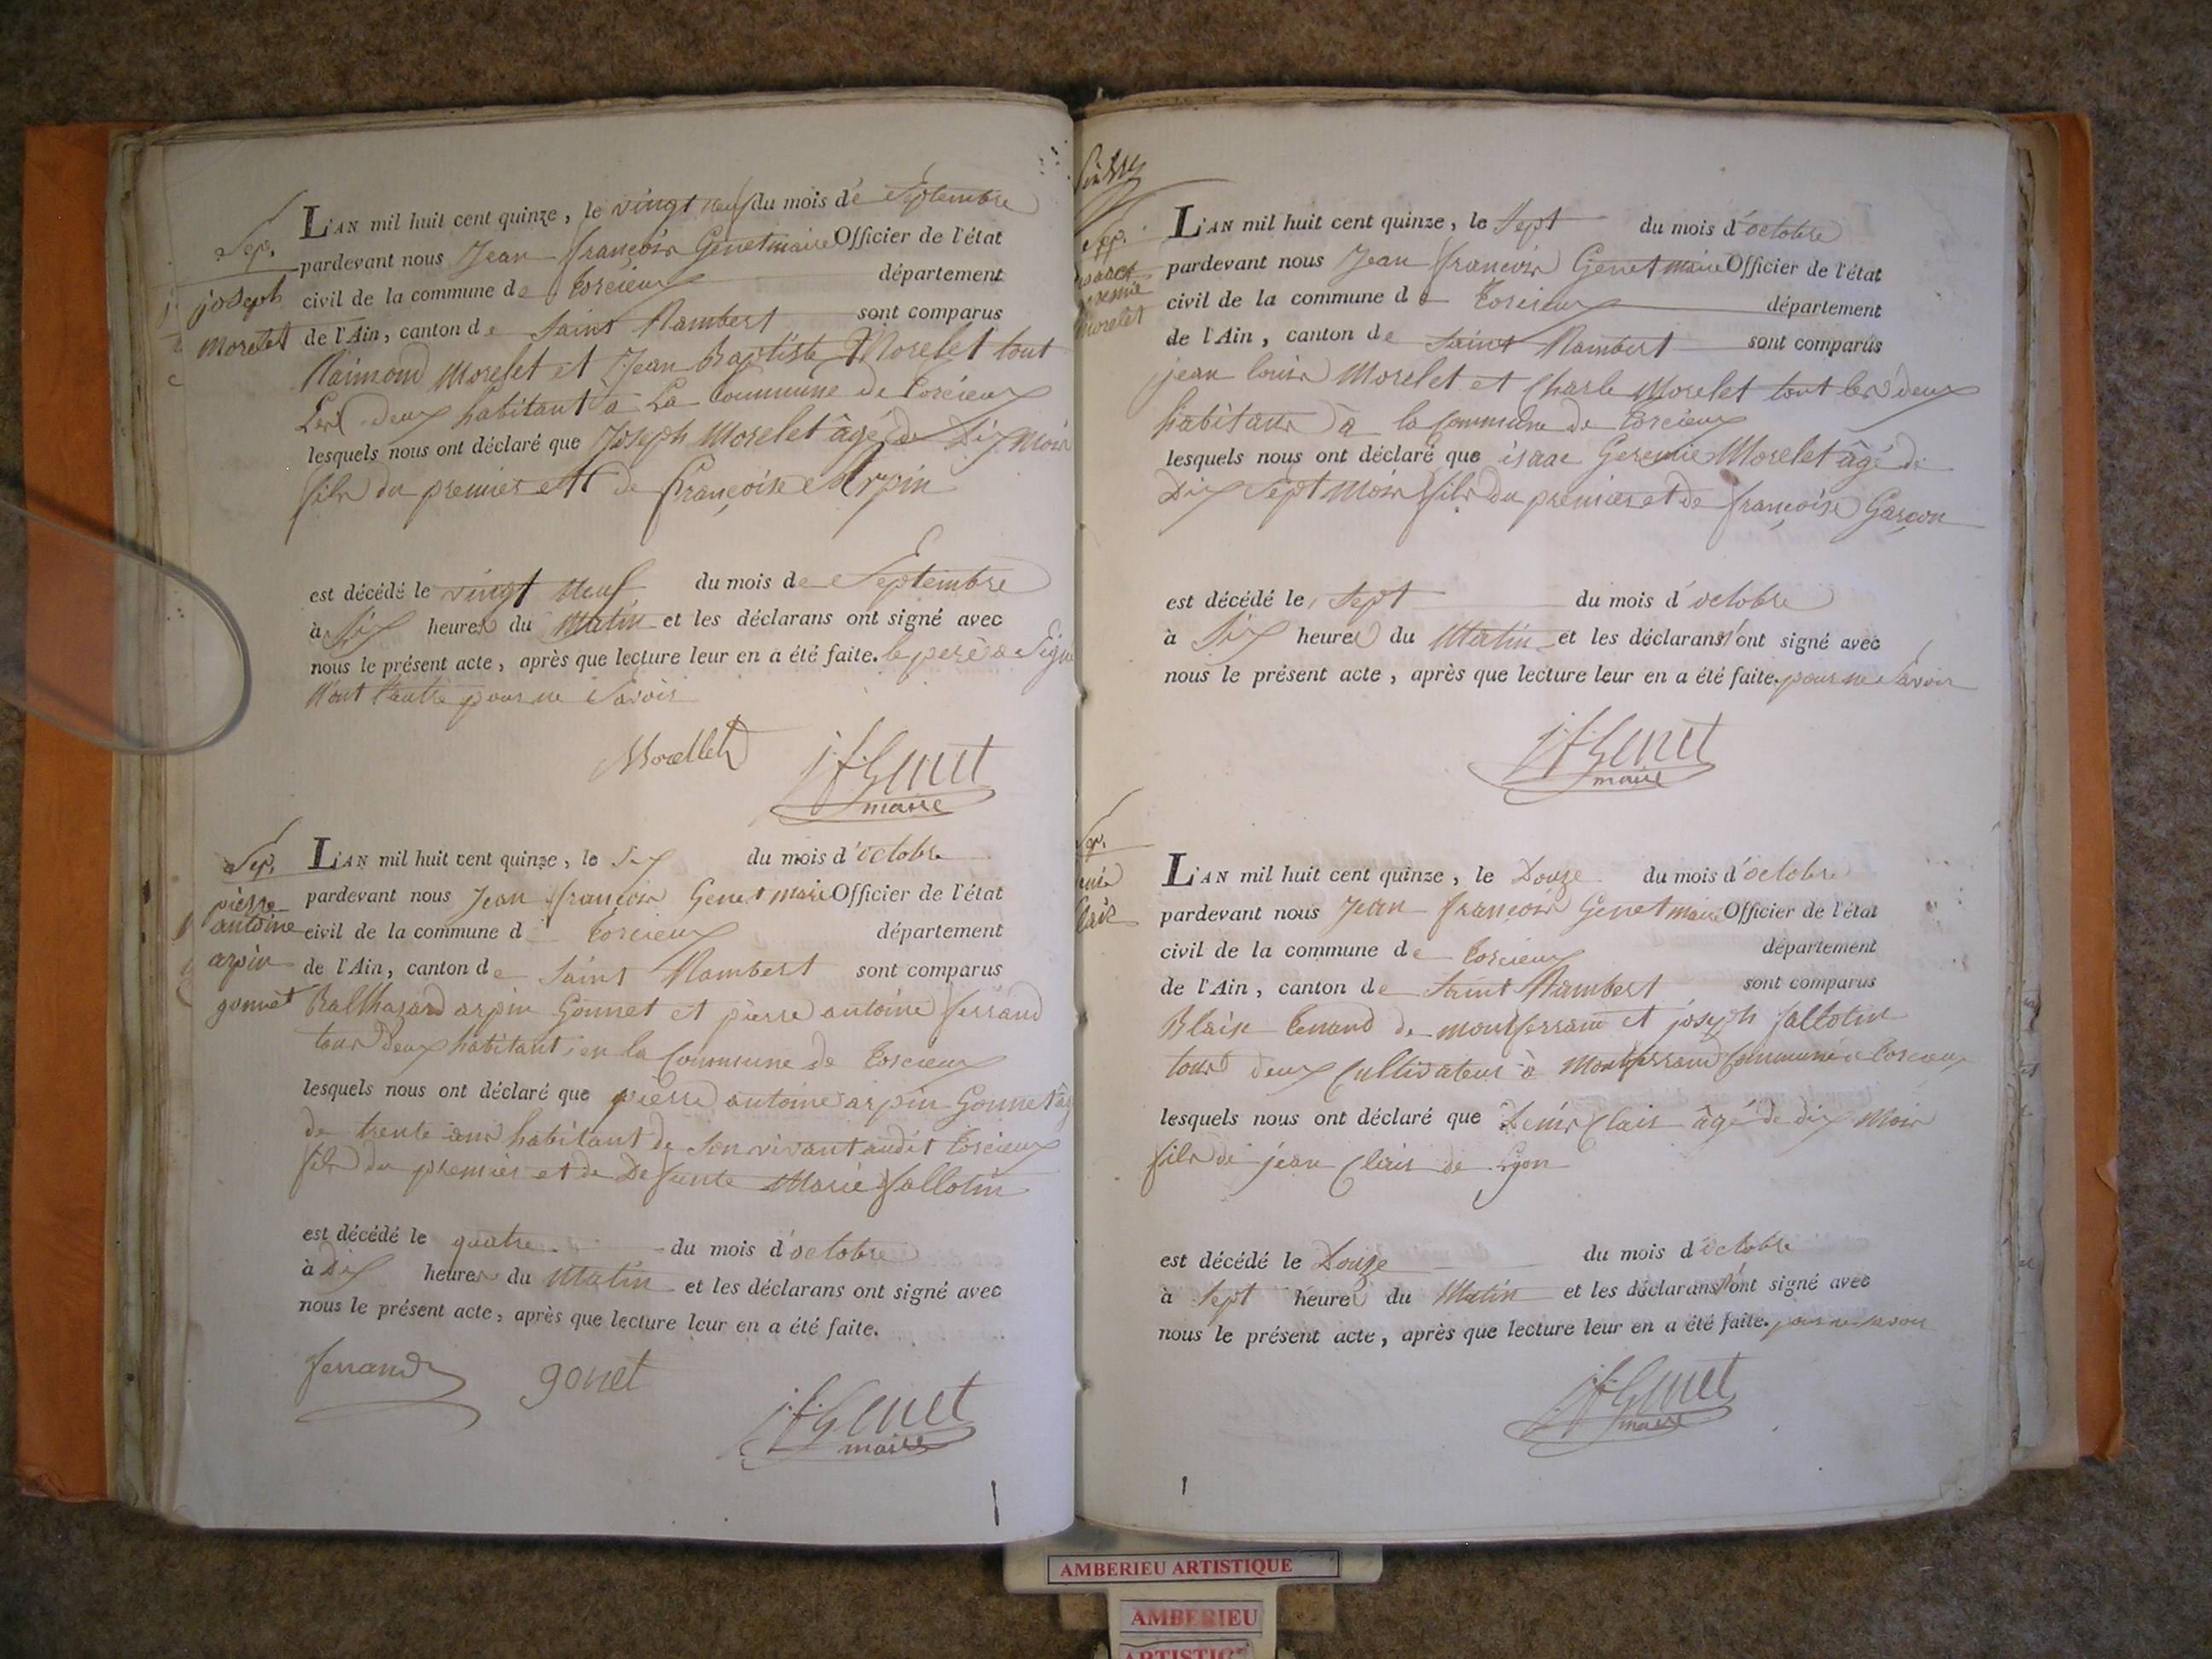 Sep.
joseph
morelet
L'AN mil huit cent quinze, le vingt neuf du mois de Septembre
pardevant nous Jean françois Genet maire Officier de l'état
civil de la commune de torcieux département
de l'Ain, canton de Saint Rambert sont comparus
Raimond Morelet et Jean Baptiste Morelet tout
Les deux habitant à La Commune de torcieux
lesquels nous ont déclaré que Joseph Morelet âgé de Dix mois
fils du premier et de françoise Arpin
est décédé le vingt Neuf du mois de Septembre
à Six heures du Matin et les déclarans ont signé avec
nous le présent acte, après que lecture leur en a été faite. le pere a Signé
Non l'autre pour ne Savoir
Morellet
jf Genet
maire
Sep.
pierre
antoine
arpin
gonnet
L'AN mil huit cent quinze, le Six du mois d'octobre
pardevant nous Jean françois Genet maire Officier de l'état
civil de la commune d torcieux département
de l'Ain, canton de Saint Rambert sont comparus
Balthazard arpin Gonnet et pierre antoine ferrand
tous deux habitant en la Commune de torcieux
lesquels nous ont déclaré que pierre antoine arpin Gonnet âg
de trente ans habitant de Son vivant audit torcieux
fils du premier et de Defunte Marie fallotin
est décédé le quatre du mois d'octobre
à Dix heures du Matin et les déclarans ont signé avec
nous le présent acte, après que lecture leur en a été faite.
ferrand
gonet
jf Genet
maire
Sep.
morelet
L'AN mil huit cent quinze, le Sept du mois d'octobre
pardevant nous Jean françois Genet maire Officier de l'état
civil de la commune de torcieux département
de l'Ain, canton de Saint Rambert sont comparus
jean louis Morelet et Charle Morelet tout les deux
habitans à la Commune de torcieux
lesquels nous ont déclaré que isaac Geremie Morelet âgé de
Dix Sept Mois fils du premier et de françoise Garçon
est décédé le Sept du mois d'octobre
à Six heures du Matin et les déclarans n'ont signé avec
nous le présent acte, après que lecture leur en a été faite. pour ne Savoir
jf Genet
maire
Sep.
L'AN mil huit cent quinze, le Douze du mois d'octobre
pardevant nous Jean françois Genet maire Officier de l'état
civil de la commune de torcieux département
de l'Ain, canton de Saint Rambert sont comparus
Blaise tenand de montferrand et joseph fallotin
tous deux Cultivateur à Montferrand Commune de torcieux
lesquels nous ont déclaré que Denis Clair âgé de dix Mois
fils de jean Clair de Lyon
est décédé le Douze du mois d'octobre
à Sept heures du Matin et les déclarans n'ont signé avec
nous le présent acte, après que lecture leur en a été faite. pour ne savoir
jf Genet
maire
AMBERIEU ARTISTIQUE
AMBERIEU